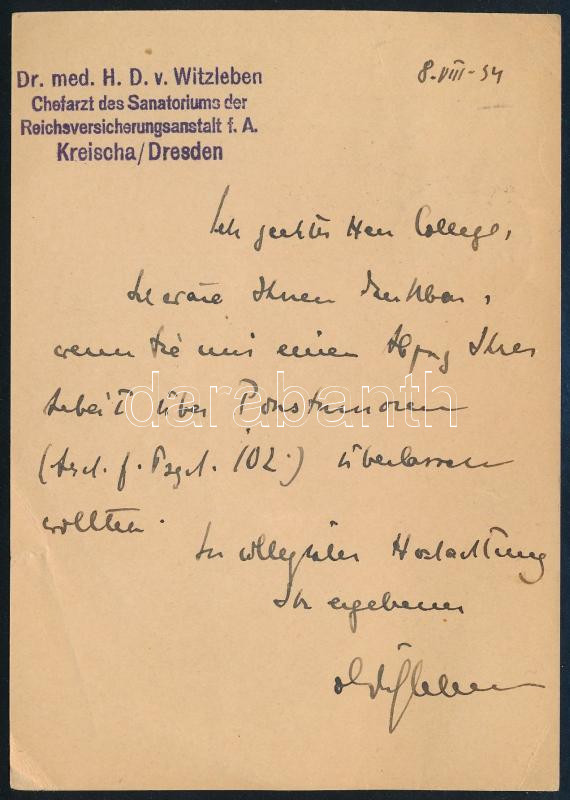 Dr. med. H. D. v. Witzleben
Chefarzt des Sanatoriums der
Reichsversicherungsanstalt f. A.
Kreischa/Dresden
8.VIII-34
Sehr geehrter Herr College,
Ich wäre Ihnen dankbar,
wenn Sie mir einen Abzug Ihrer
Arbeit über Ponstumoren
(Arch. f. Psych. 102.) überlassen
wollten.
In collegialer Hochachtung
Ihr ergebener
Witzleben
darabanth